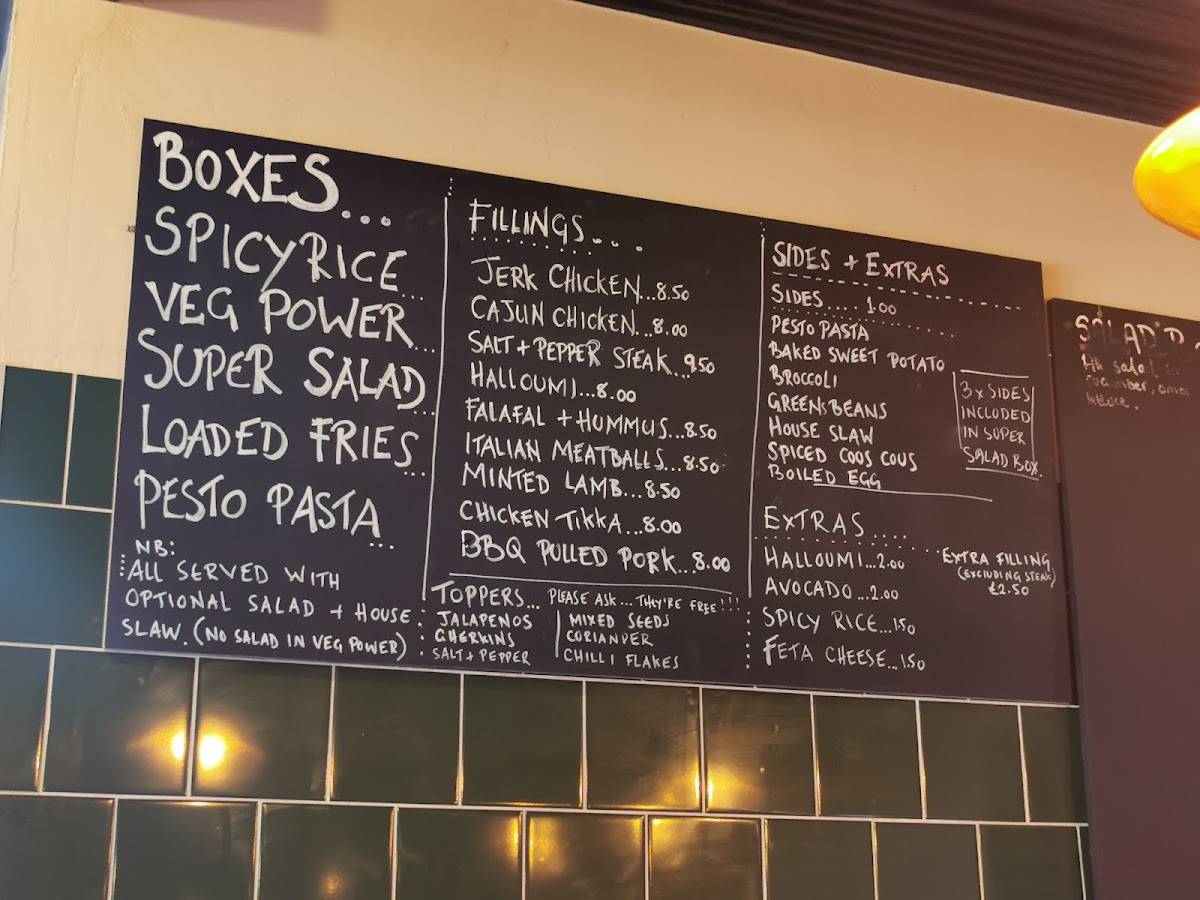 BOXES...
SPICY RICE...
VEG POWER...
SUPER SALAD...
LOADED FRIES...
PESTO PASTA...
NB:
ALL SERVED WITH
OPTIONAL SALAD + HOUSE
SLAW. (NO SALAD IN VEG POWER)
FILLINGS...
JERK CHICKEN...8.50
CAJUN CHICKEN...8.00
SALT + PEPPER STEAK...9.50
HALLOUMI...8.00
FALAFAL + HUMMUS...8.50
ITALIAN MEATBALLS...8.50
MINTED LAMB...8.50
CHICKEN TIKKA...8.00
BBQ PULLED PORK...8.00
TOPPERS... PLEASE ASK... THEY'RE FREE!!!
JALAPENOS
GHERKINS
SALT + PEPPER
MIXED SEEDS
CORIANDER
CHILLI FLAKES
SIDES + EXTRAS
SIDES..... 1.00
PESTO PASTA
BAKED SWEET POTATO
BROCCOLI
GREENS BEANS
HOUSE SLAW
SPICED COOS COUS
BOILED EGG
3 x SIDES
INCLUDED
IN SUPER
SALAD BOX.
EXTRAS....
HALLOUMI...2.00
AVOCADO...2.00
SPICY RICE...1.50
FETA CHEESE...1.50
EXTRA FILLING
(EXCLUDING STEAK)
£2.50
SALAD'D
salad
cucumber,
lettuce.